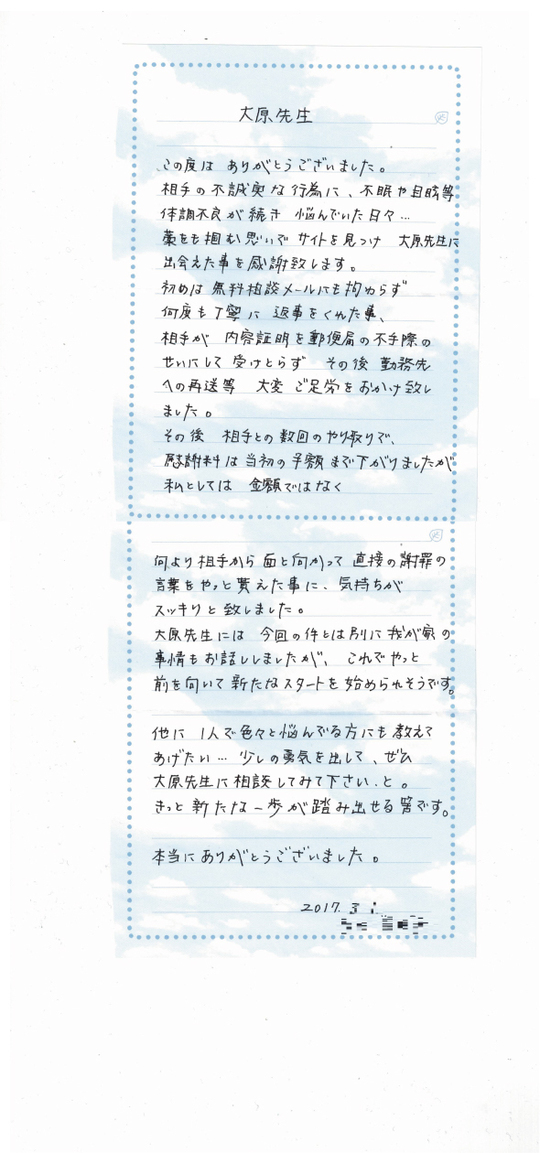 大原先生
この度は ありがとうございました。
相手の不誠実な行為に、不眠や目眩等
体調不良が続き 悩んでいた日々…
藁をも掴む思いで サイトを見つけ 大原先生に
出会えた事を感謝致します。
初めは 無料相談メールにも拘わらず
何度も丁寧に 返事をくれた事、
相手が 内容証明を郵便局の不手際の
せいにして 受けとらず その後 勤務先
への再送等 大変 ご足労をおかけ致し
ました。
その後 相手との数回のやり取りで、
慰謝料は当初の半額まで下がりましたが
私としては 金額ではなく
何より相手から 面と向かって 直接の謝罪の
言葉をやっと貰えた事に、気持ちが
スッキリと致しました。
大原先生には 今回の件とは別に 我が家の
事情もお話ししましたが、これでやっと
前を向いて 新たなスタートを始められそうです。
他に 1人で色々と悩んでる方にも教えて
あげたい… 少しの勇気を出して、ぜひ
大原先生に相談してみて下さい、と。
きっと新たな一歩が踏み出せる筈です。
本当にありがとうございました。
2017. 3